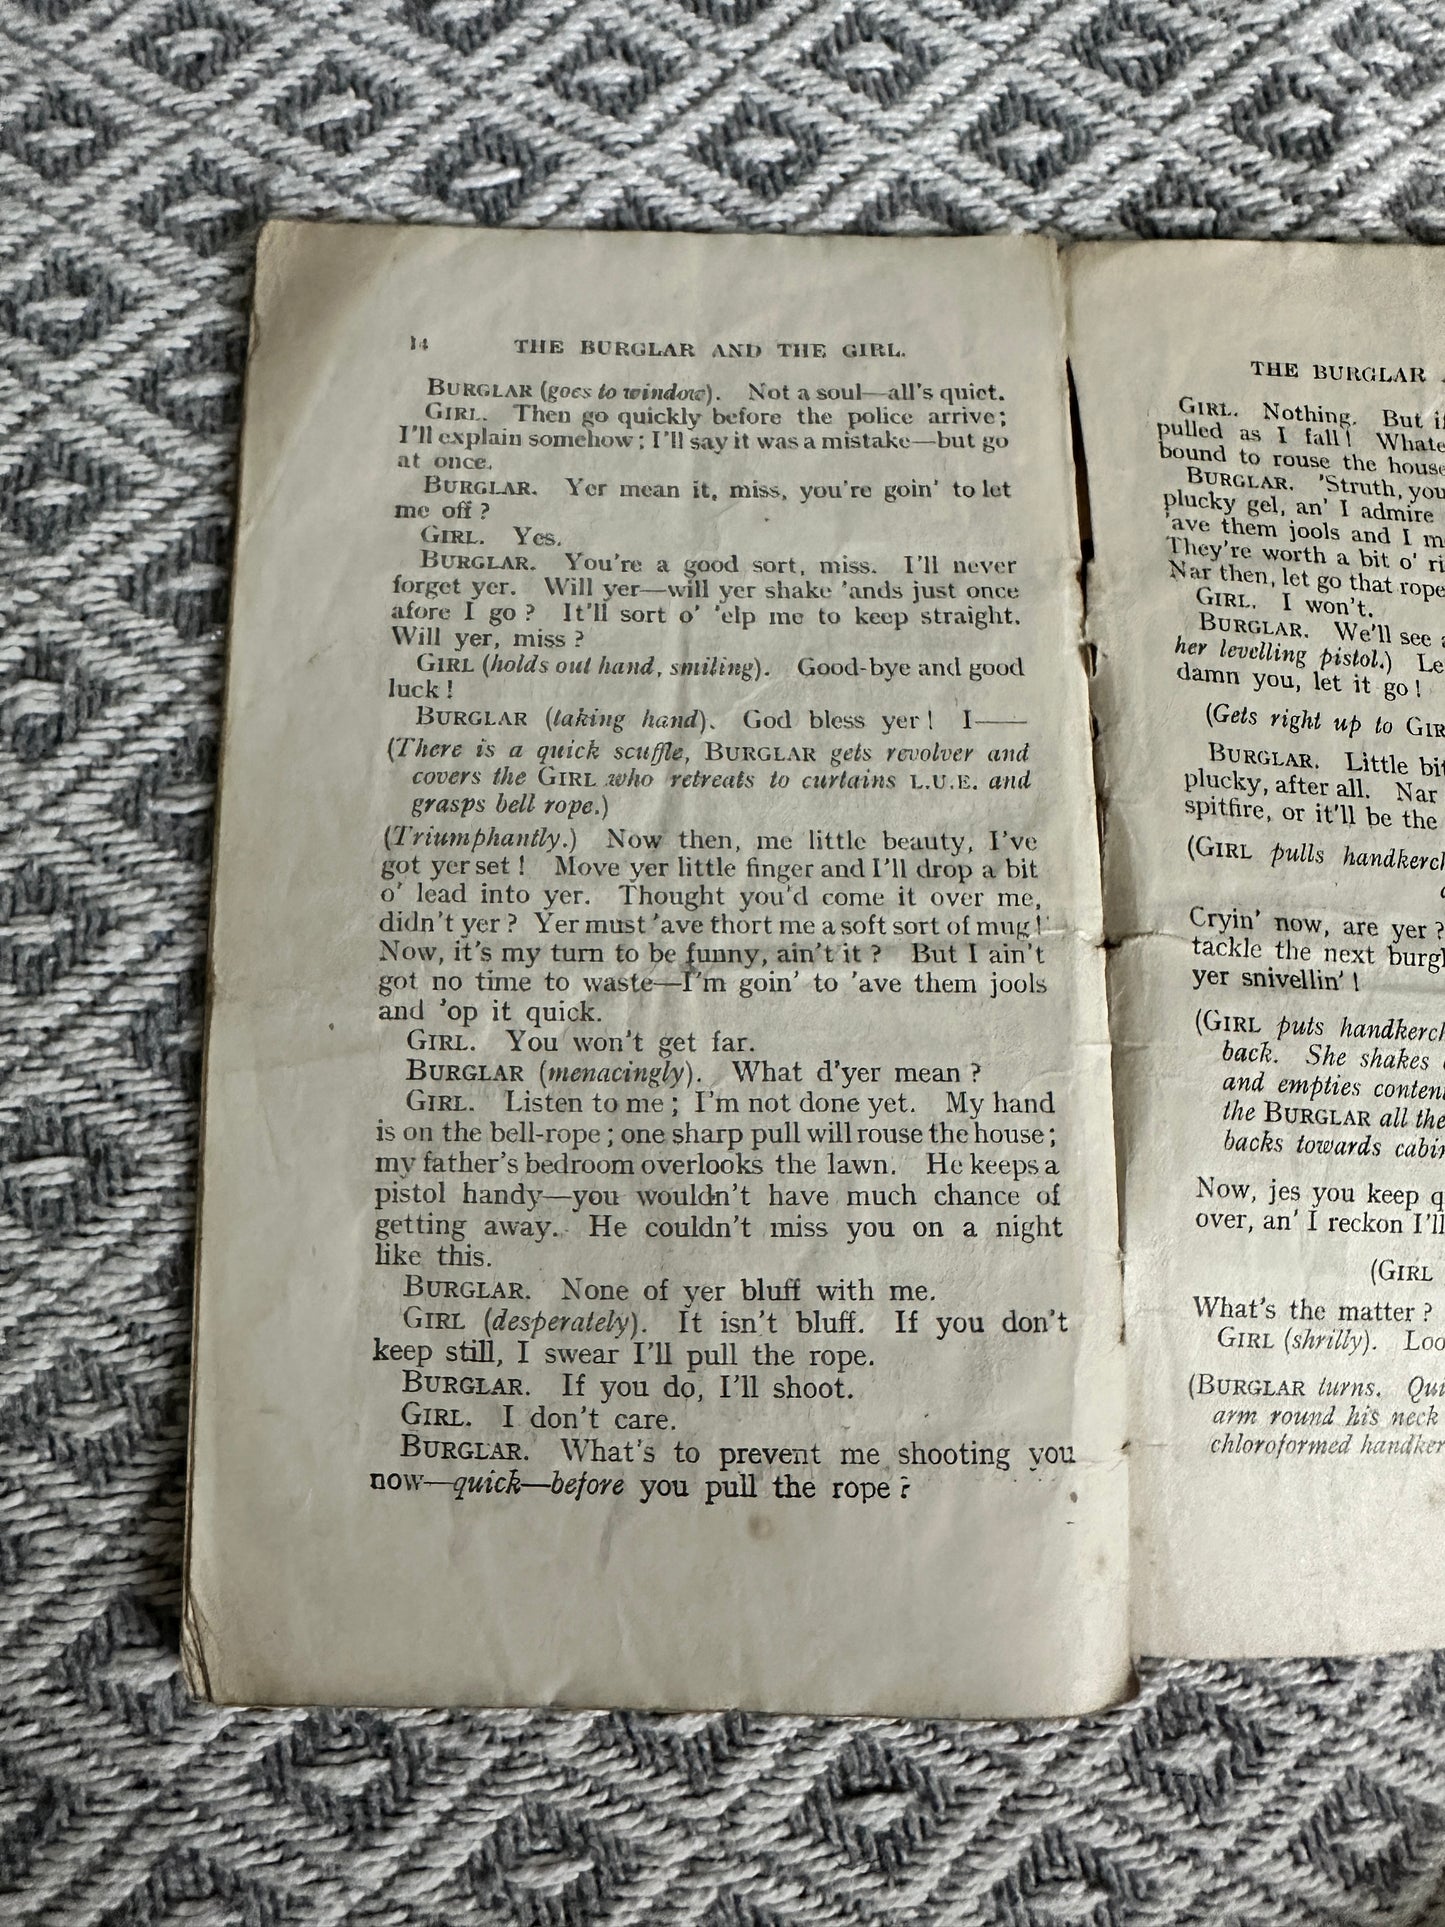 14 THE BURGLAR AND THE GIRL.
BURGLAR (goes to window). Not a soul—all's quiet.
GIRL. Then go quickly before the police arrive;
I'll explain somehow; I'll say it was a mistake—but go
at once.
BURGLAR. Yer mean it, miss, you're goin' to let
me off?
GIRL. Yes.
BURGLAR. You're a good sort, miss. I'll never
forget yer. Will yer—will yer shake 'ands just once
afore I go? It'll sort o' 'elp me to keep straight.
Will yer, miss?
GIRL (holds out hand, smiling). Good-bye and good
luck!
BURGLAR (taking hand). God bless yer! I——
(There is a quick scuffle, BURGLAR gets revolver and
covers the GIRL who retreats to curtains L.U.E. and
grasps bell rope.)
(Triumphantly.) Now then, me little beauty, I've
got yer set! Move yer little finger and I'll drop a bit
o' lead into yer. Thought you'd come it over me,
didn't yer? Yer must 'ave thort me a soft sort of mug!
Now, it's my turn to be funny, ain't it? But I ain't
got no time to waste—I'm goin' to 'ave them jools
and 'op it quick.
GIRL. You won't get far.
BURGLAR (menacingly). What d'yer mean?
GIRL. Listen to me; I'm not done yet. My hand
is on the bell-rope; one sharp pull will rouse the house;
my father's bedroom overlooks the lawn. He keeps a
pistol handy—you wouldn't have much chance of
getting away. He couldn't miss you on a night
like this.
BURGLAR. None of yer bluff with me.
GIRL (desperately). It isn't bluff. If you don't
keep still, I swear I'll pull the rope.
BURGLAR. If you do, I'll shoot.
GIRL. I don't care.
BURGLAR. What's to prevent me shooting you
now—quick—before you pull the rope?
THE BURGLAR
GIRL. Nothing. But if
pulled as I fall! 
bound to rouse the house
BURGLAR. 'Struth, you
plucky gel, an' I admire
'ave them jools and I
They're worth a bit o'
Nar then, let go that rope
GIRL. I won't.
BURGLAR. We'll see
her levelling pistol.)
damn you, let it go!
(Gets right up to
BURGLAR. Little
plucky, after all. Nar
spitfire, or it'll be the
(GIRL pulls
Cryin' now, are yer?
tackle the next
yer snivellin'!
(GIRL puts
back. She shakes
and empties
the BURGLAR all
backs towards
Now, jes you keep
over, an' I reckon I'll
(GIRL
What's the matter?
GIRL (shrilly).
(BURGLAR turns.
arm round his neck
chloroformed